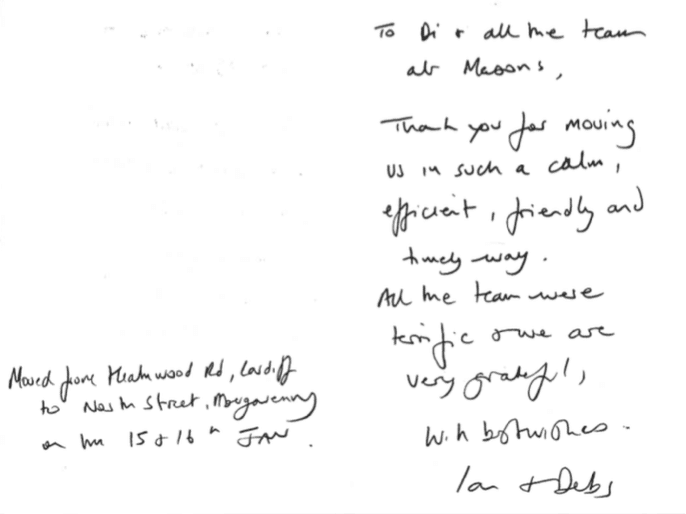 To Di + all the team
at Masons,
Thank you for moving
us in such a calm,
efficient, friendly and
timely way.
All the team were
terrific & we are
very grateful,
With best wishes.
Ian + Debs
Moved from Heathwood Rd, Cardiff
to North Street, Abergavenny
on the 15 & 16th JAN.